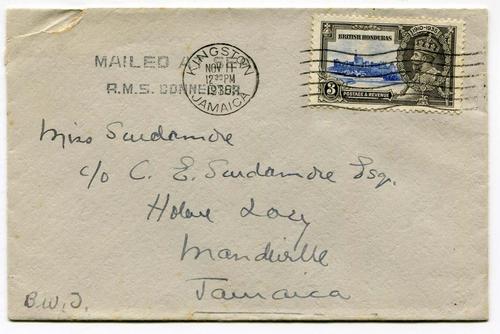 MAILED A SEA
R.M.S. CONNECTOR
KINGSTON
NOV 11
12 30 PM
1935
JAMAICA
BRITISH HONDURAS
1910-1935
3
POSTAGE & REVENUE
Miss Scudamore
c/o C. E. Scudamore Esq.
Mandeville
Jamaica
B.W.I.